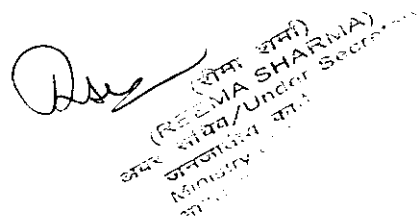 (रीमा शर्मा)
(REEMA SHARMA)
अवर सचिव/Under Secre
जनजातीय का
Ministry